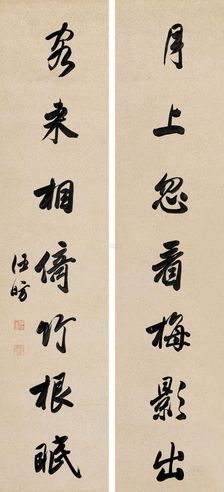 月上忽看梅影出
客来相倚竹根眠